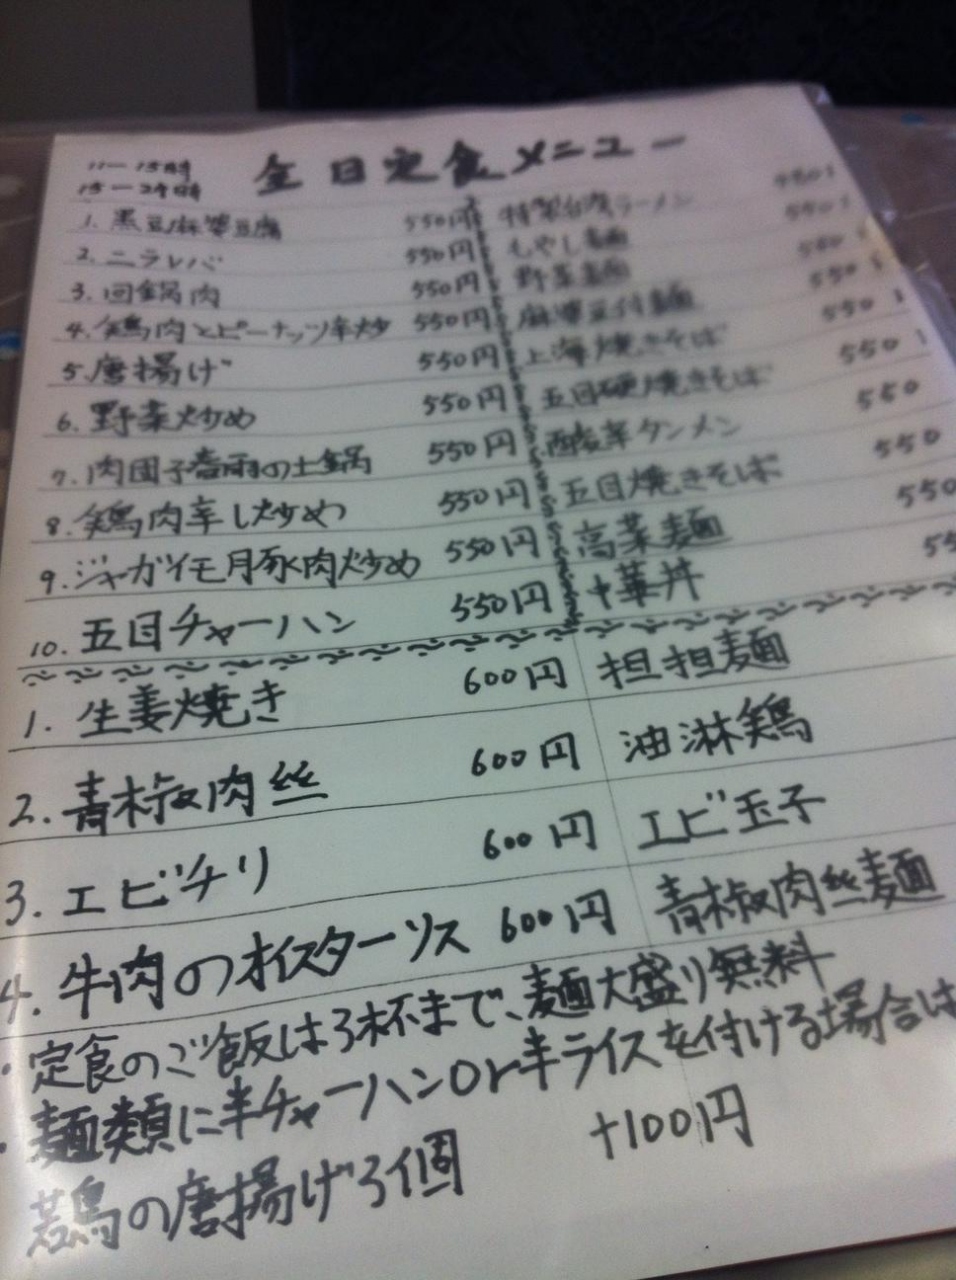 11－15時 全日定食メニュー
15－24時
1. 黒豆麻婆豆腐 550円 特製台湾ラーメン
2. ニラレバ 550円 もやし麺 550
3. 回鍋肉 550円 野菜麺 550
4. 鶏肉とピーナッツ辛炒 550円 麻婆豆付麺 550
5. 唐揚げ 550円 上海焼きそば 550
6. 野菜炒め 550円 五目硬焼きそば 550
7. 肉団子春雨の土鍋 550円 酸辛タンメン 550
8. 鶏肉辛し炒め 550円 五目焼きそば 550
9. ジャガイモ豚肉炒め 550円 高菜麺 550
10. 五目チャーハン 550円 中華丼 55
1. 生姜焼き 600円 担担麺
2. 青椒肉絲 600円 油淋鶏
3. エビチリ 600円 エビ玉子
4. 牛肉のオイスターソス 600円 青椒肉絲麺
・定食のご飯は3杯まで、麺大盛り無料
・麺類に半チャーハンor半ライスを付ける場合は
若鳥の唐揚げ3個 +100円